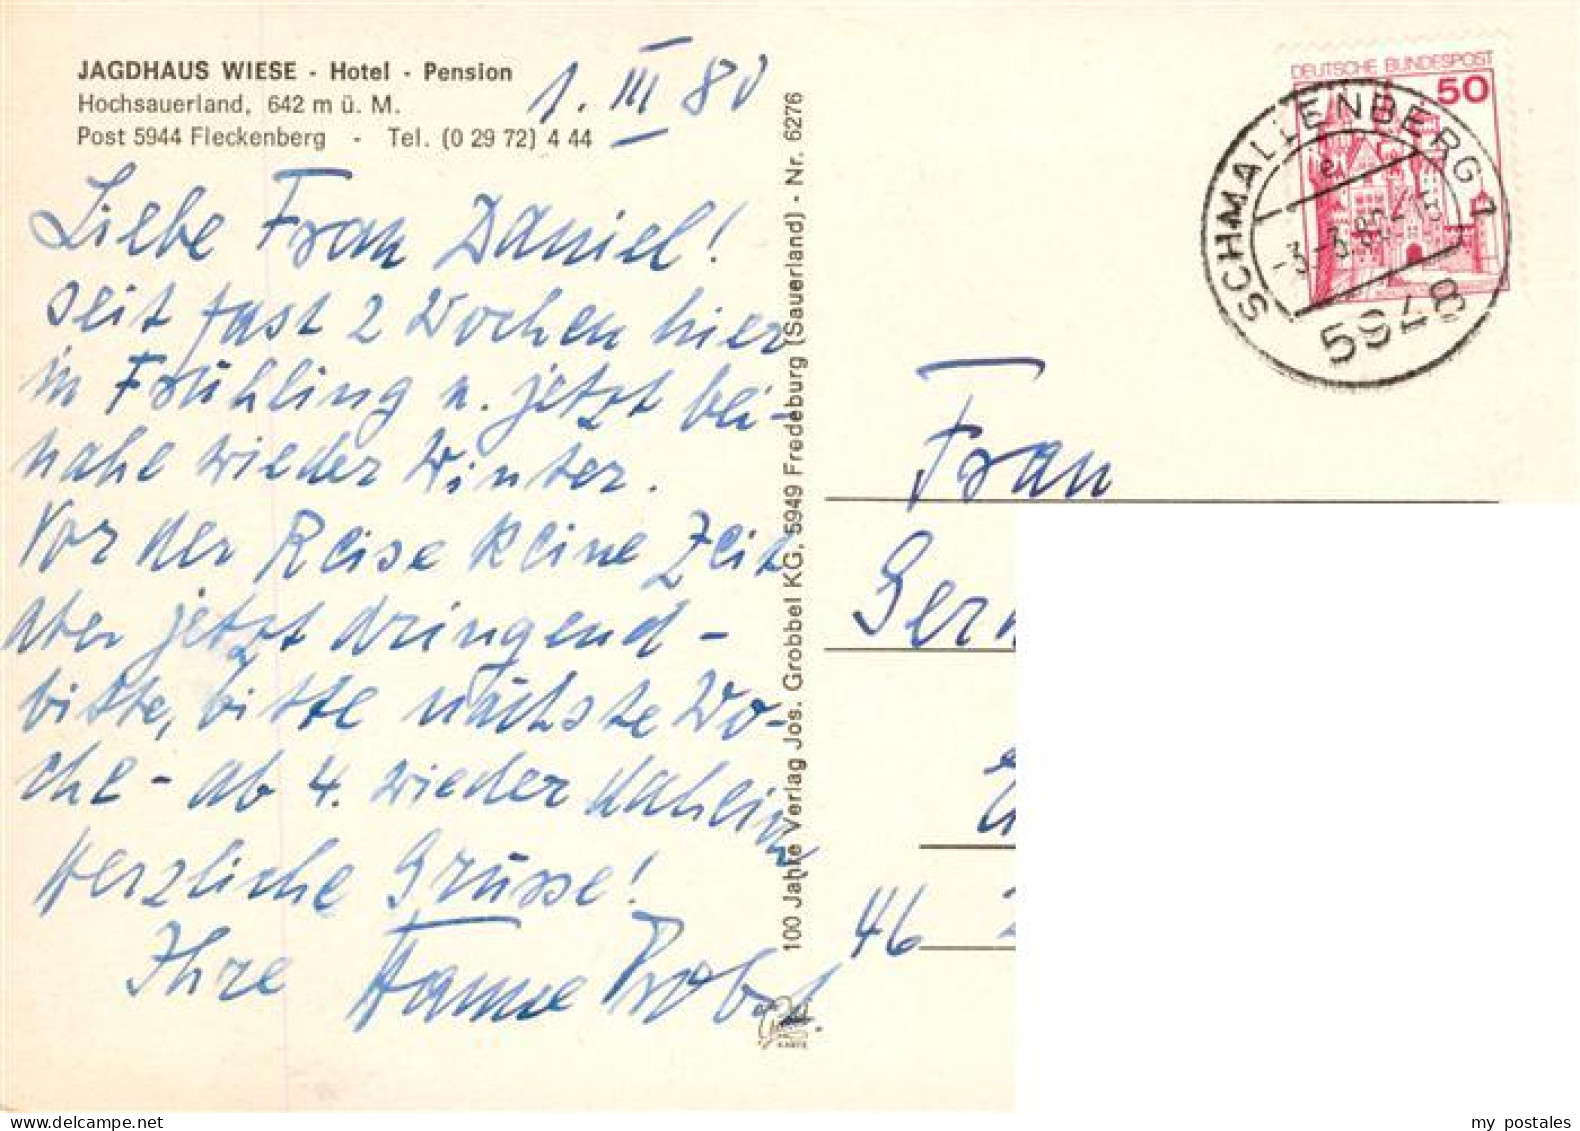 JAGDHAUS WIESE - Hotel - Pension
Hochsauerland, 642 m ü. M.
Post 5944 Fleckenberg - Tel. (0 29 72) 4 44
1. III 80
Liebe Frau Daniel!
seit fast 2 Wochen hier
im Frühling u. jetzt bei-
nahe wieder Winter.
Vor der Reise keine Zeit
aber jetzt dringend -
bitte, bitte nächste Wo-
che - ab 4. wieder daheim
Herzliche Grüsse!
Ihre Hanne
100 Jahre Verlag Jos. Grobbel KG, 5949 Fredeburg (Sauerland) - Nr. 6276
DEUTSCHE BUNDESPOST
50
SCHMALLENBERG 1
e
5948
Frau
Ger
46
www.delcampe.net
my postales